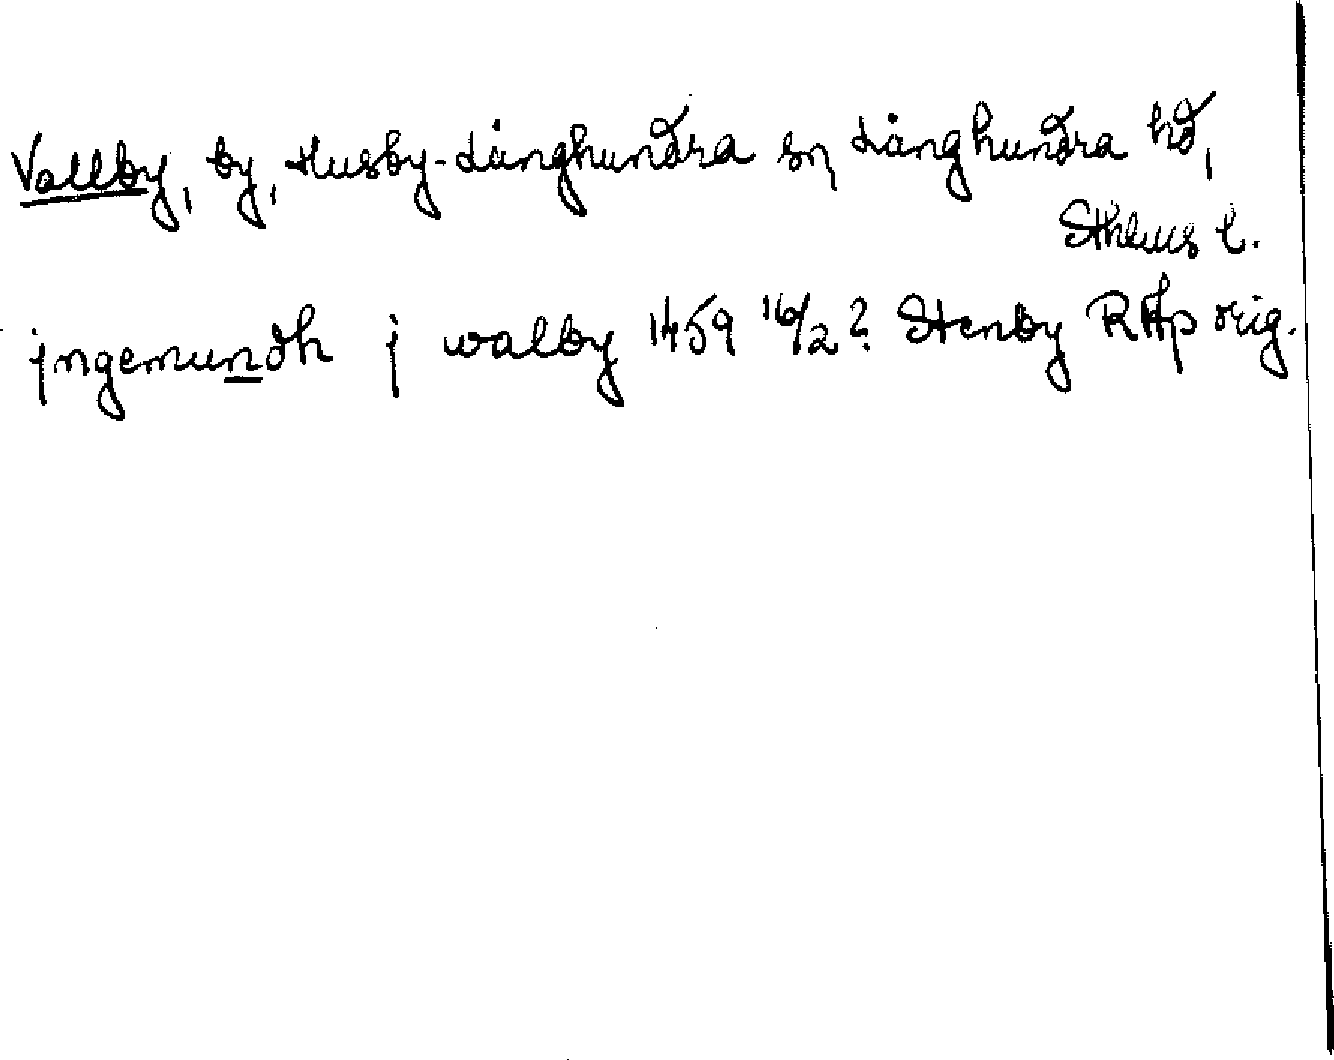 Vallby, by, Husby-Långhundra sn Långhundra hd,
Sthlms l.
jngemundh j walby 1459 16/2? Stenby RAp orig.